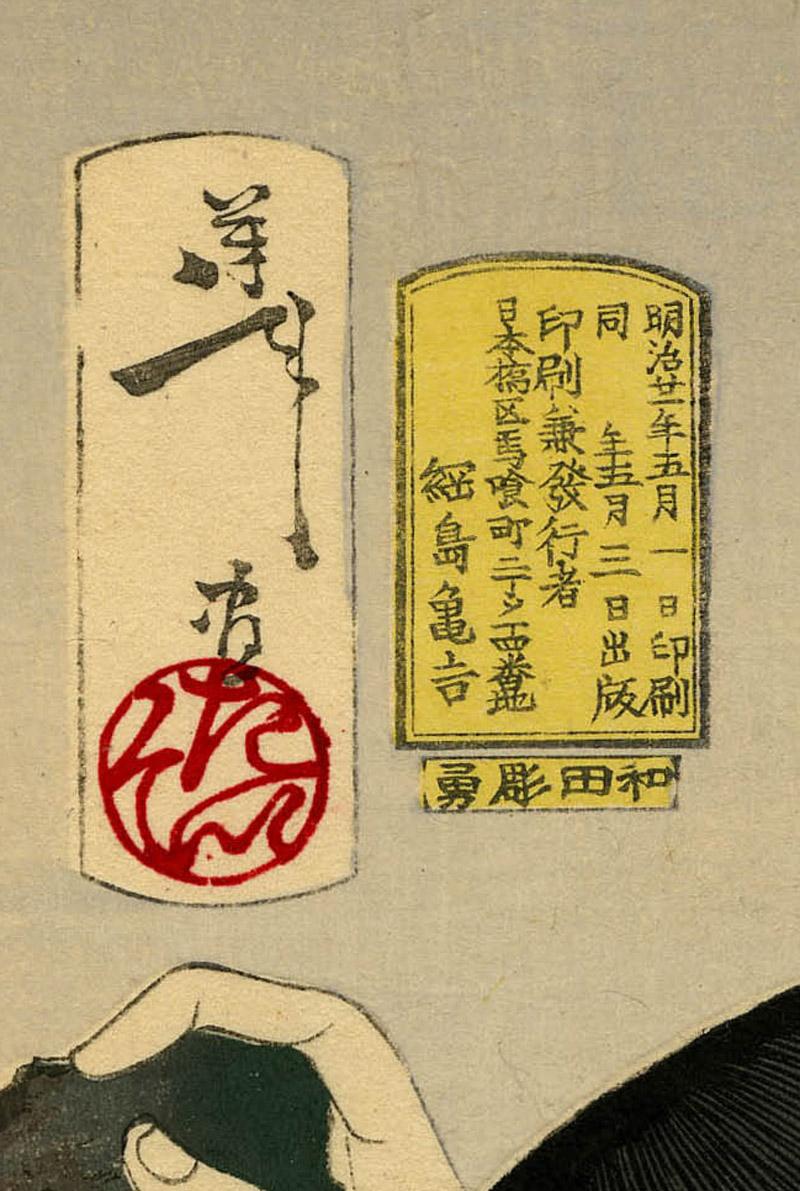 芳年画
明治廿一年五月一日印刷
同年五月三日出版
印刷兼發行者
日本橋区馬喰町二丁メ十四番地
綱島亀吉
和田彫勇